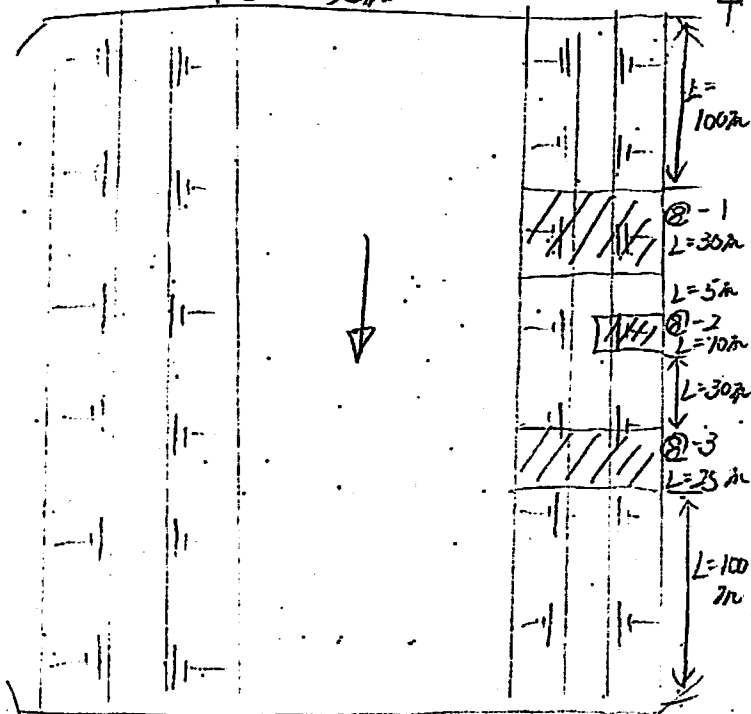 L=
100m
-1
L=30m
L=5m
-2
L=10m
L=30m
-3
L=25m
L=100
m